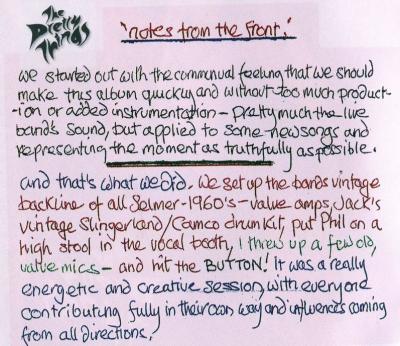 The
Pretty
Things
'notes from the front.'
we started out with the communual feeling that we should
make this album quickly and without too much product-
-ion or added instrumentation - pretty much the live
band's sound, but applied to some new songs and
representing the moment as truthfully as possible.
and that's what we did. we set up the bands vintage
backline of all Selmer-1960's-value amps, Jack's
vintage Slingerland/Camco drum kit, put Phil on a
high stool in the vocal booth, I threw up a few old,
valve mics - and hit the BUTTON! It was a really
energetic and creative session, with everyone
contributing fully in their own way and influences coming
from all directions.